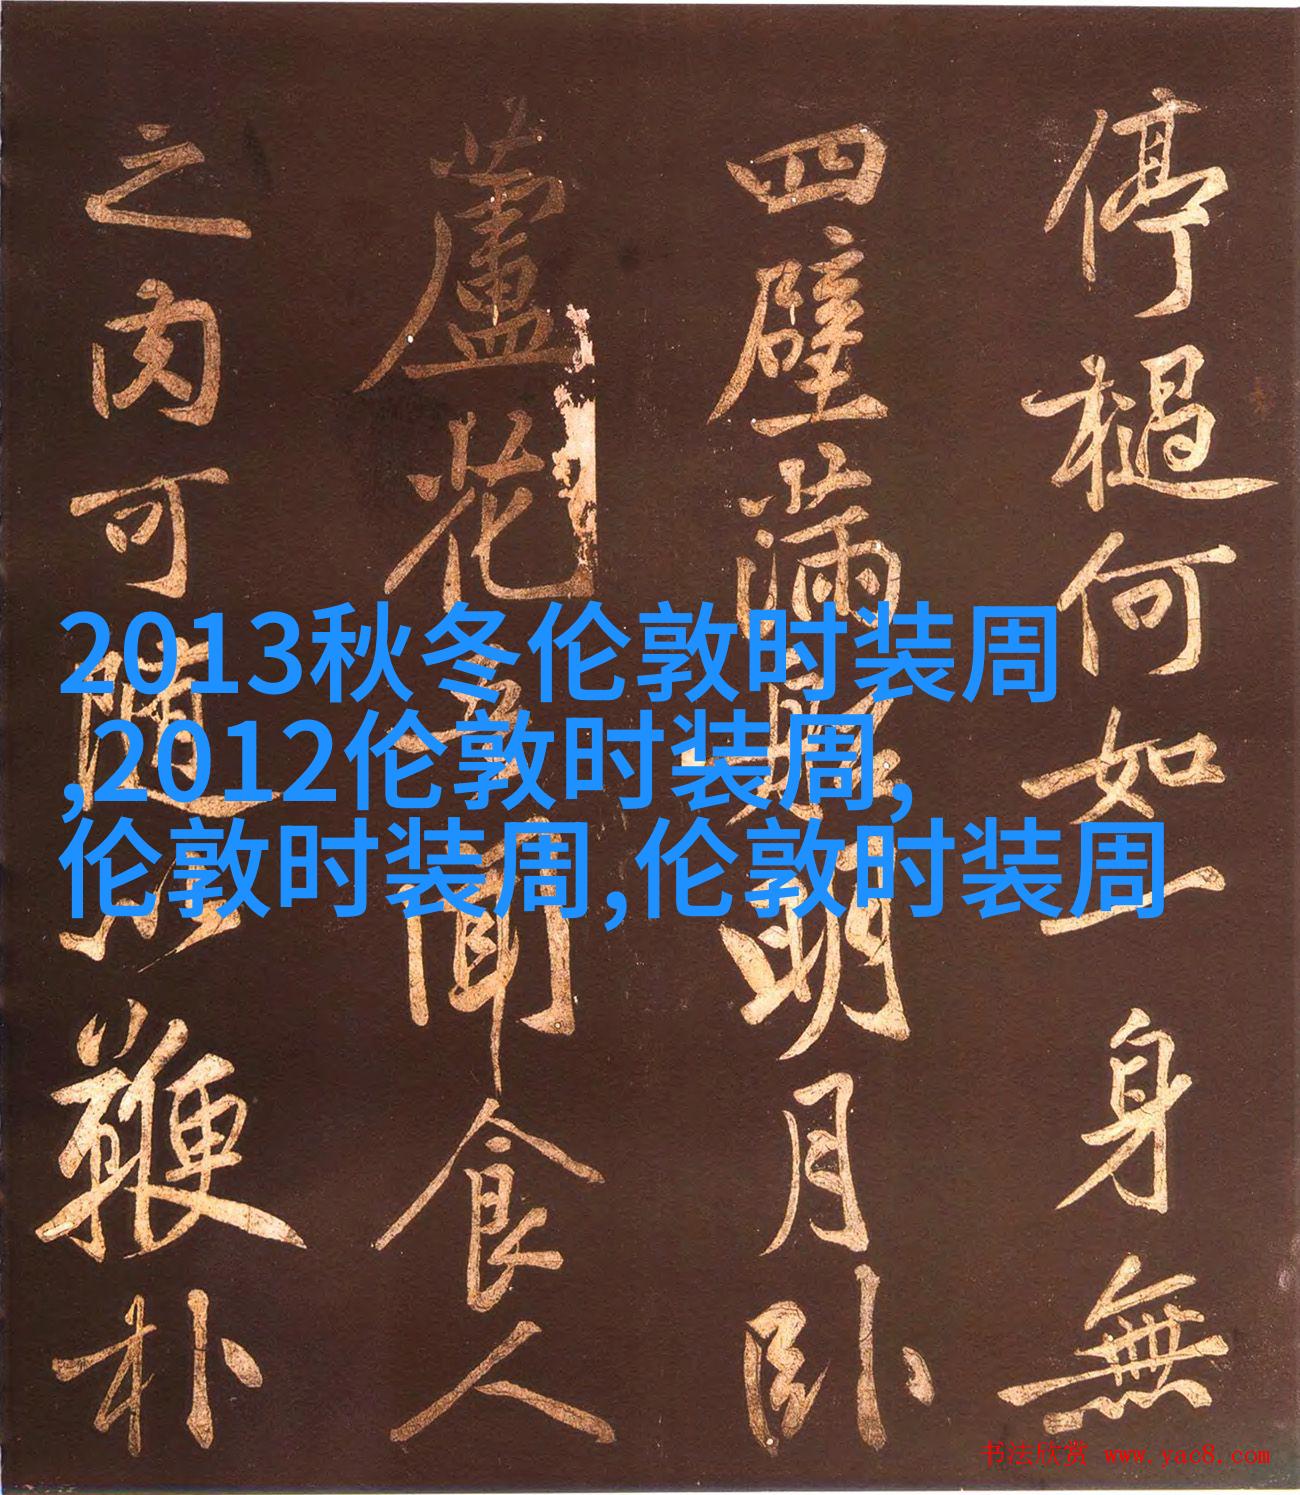 停檛何如一身無
四壁滿明月卧
蘆花聞食人
之肉可隨鞭朴
2013秋冬伦敦时装周
,2012伦敦时装周,
伦敦时装周,伦敦时装周
书法欣赏 www.yac8.com